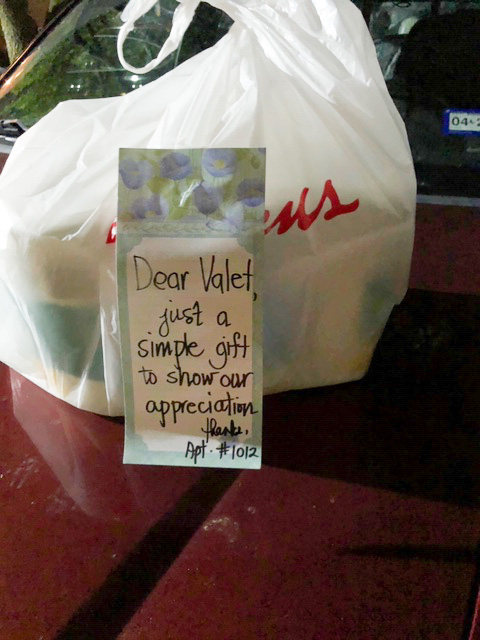 Dear Valet,
just a
simple gift
to show our
appreciation
thanks.
Apt. #1012